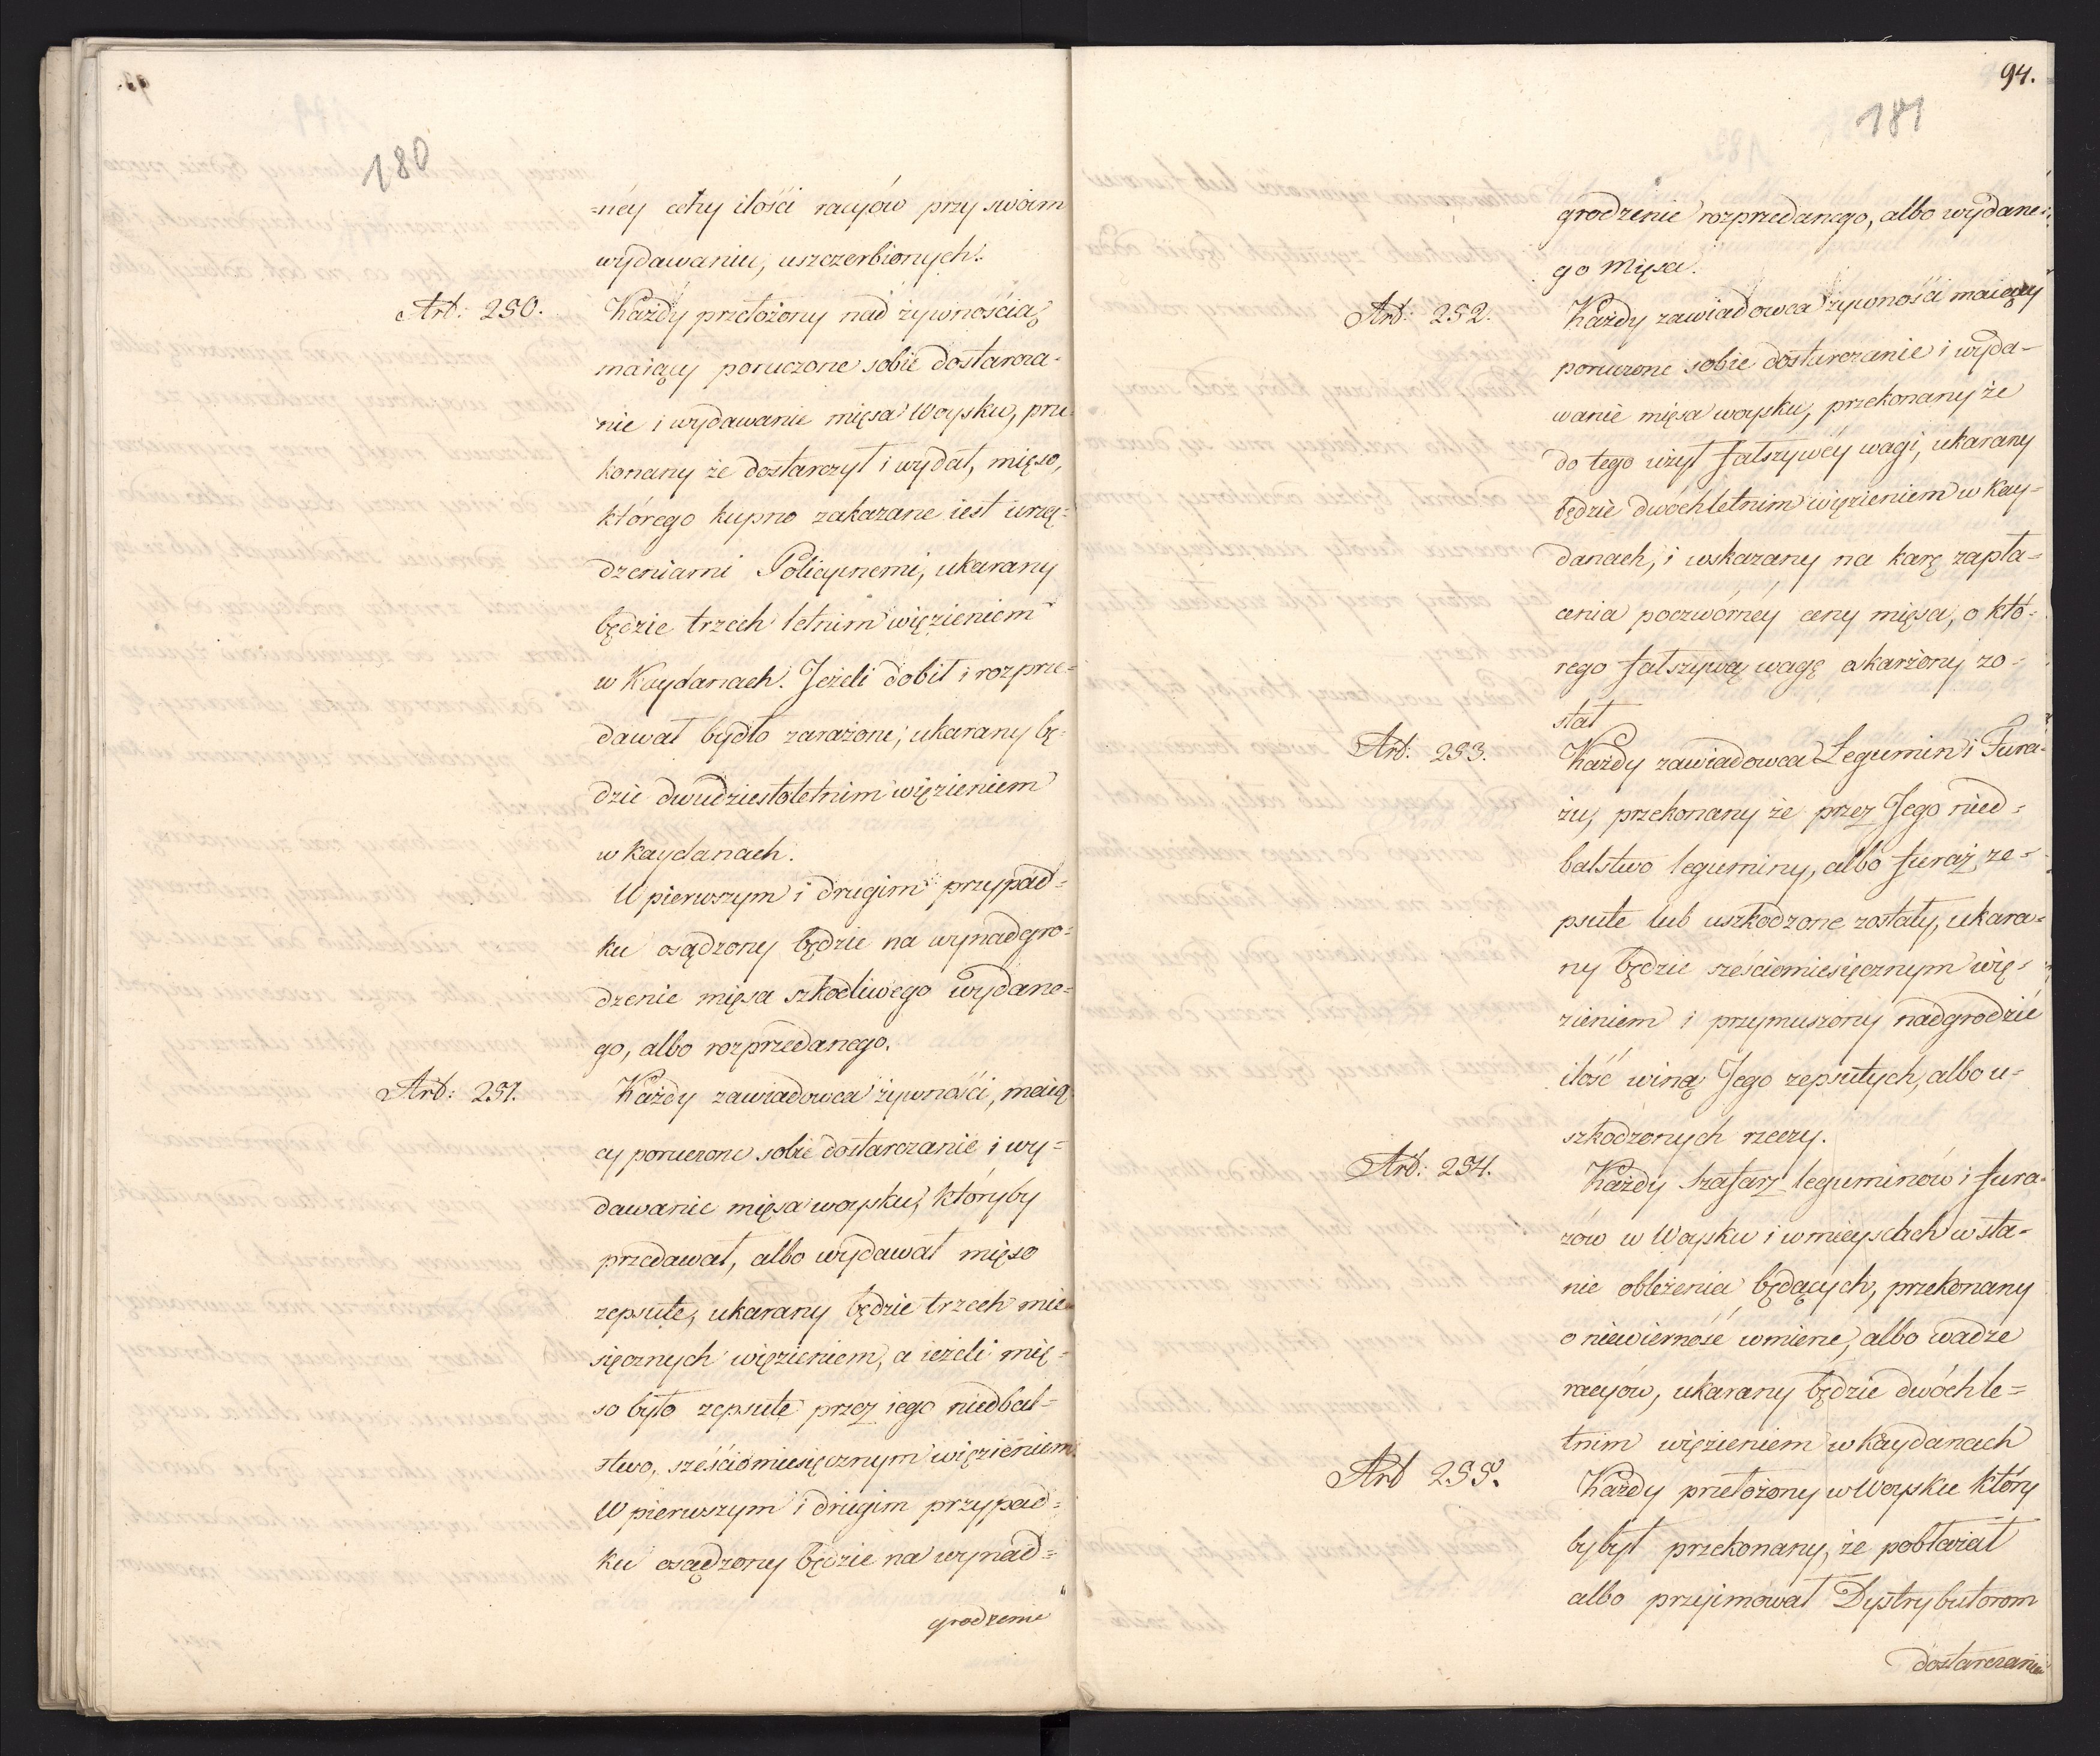 180
=néy ceny ilości racyów przy swoim
wydawaniu, uszczerbionych.
Art: 250.
Każdy przełożony nad żywnością
maiący poruczone sobie dostarcza-
nie i wydawanie mięsa Woysku, prze
konany że dostarczył i wydał, mięso,
którego kupno zakazane iest urzą=
dzeniami Policyinemi, ukarany
będzie trzech letnim więzieniem
w Kaydanach. Jeżeli dobił i rozprze=
dawał bydło zarażone, ukarany bę-
dzie dwudziestoletnim więzieniem
w Kaydanach.
W pierwszym i drugim przypad=
ku osądzony będzie na wynadgro=
dzenie mięsa szkodliwego wydane=
go, albo rozprzedanego.
Art: 251.
Każdy zawiadowca żywności, maią
cy poruczone sobie dostarczanie i wy=
dawanie mięsa woysku, któryby
przedawał, albo wydawał mięso
zepsute, ukarany będzie trzech mie
sięcznych więzieniem, a ieżeli mię=
so było zepsute przez iego niedbal=
stwo, sześciomiesięcznym więzieniem.
W pierwszym i drugim przypad=
ku osądzony będzie na wynad=
grodzenie
94.
181
grodzenie rozprzedanego, albo wydane=
go Mięsa.
Art: 252.
Każdy zawiadowca żywności maiący
poruczone sobie dostarczanie i wyda-
wanie mięsa woysku, przekonany że
do tego użył fałszywéy wagi, ukarany
będzie dwóchletnim więzieniem w Kay=
danach, i wskazany na karę zapła=
cenia poczwórnéy ceny mięsa, o któ=
rego fałszywą wagę oskarżony zo=
stał
Art: 253.
Każdy zawiadowca Legumin i Fura=
żu, przekonany że przez Jego nied=
balstwo leguminy, albo furaż ze=
psute lub uszkodzone zostały, ukara=
ny będzie sześciomiesięcznym wię=
zieniem i przymuszony nadgrodzić
ilość winą Jego zepsutych, albo u=
szkodzonych rzeczy.
Art: 254.
Każdy Szafarz leguminów i fura=
żów w Woysku i w mieyscach w sta=
nie oblężenia będących, przekonany
o niewierność w mierze, albo wadze
racyów, ukarany będzie dwóchle=
tnim więzieniem w Kaydanach
Art 255.
Każdy przełożony w Woysku który
by był przekonany, że pobłażał
albo przyimował Dystrybutorom
dostarczanie